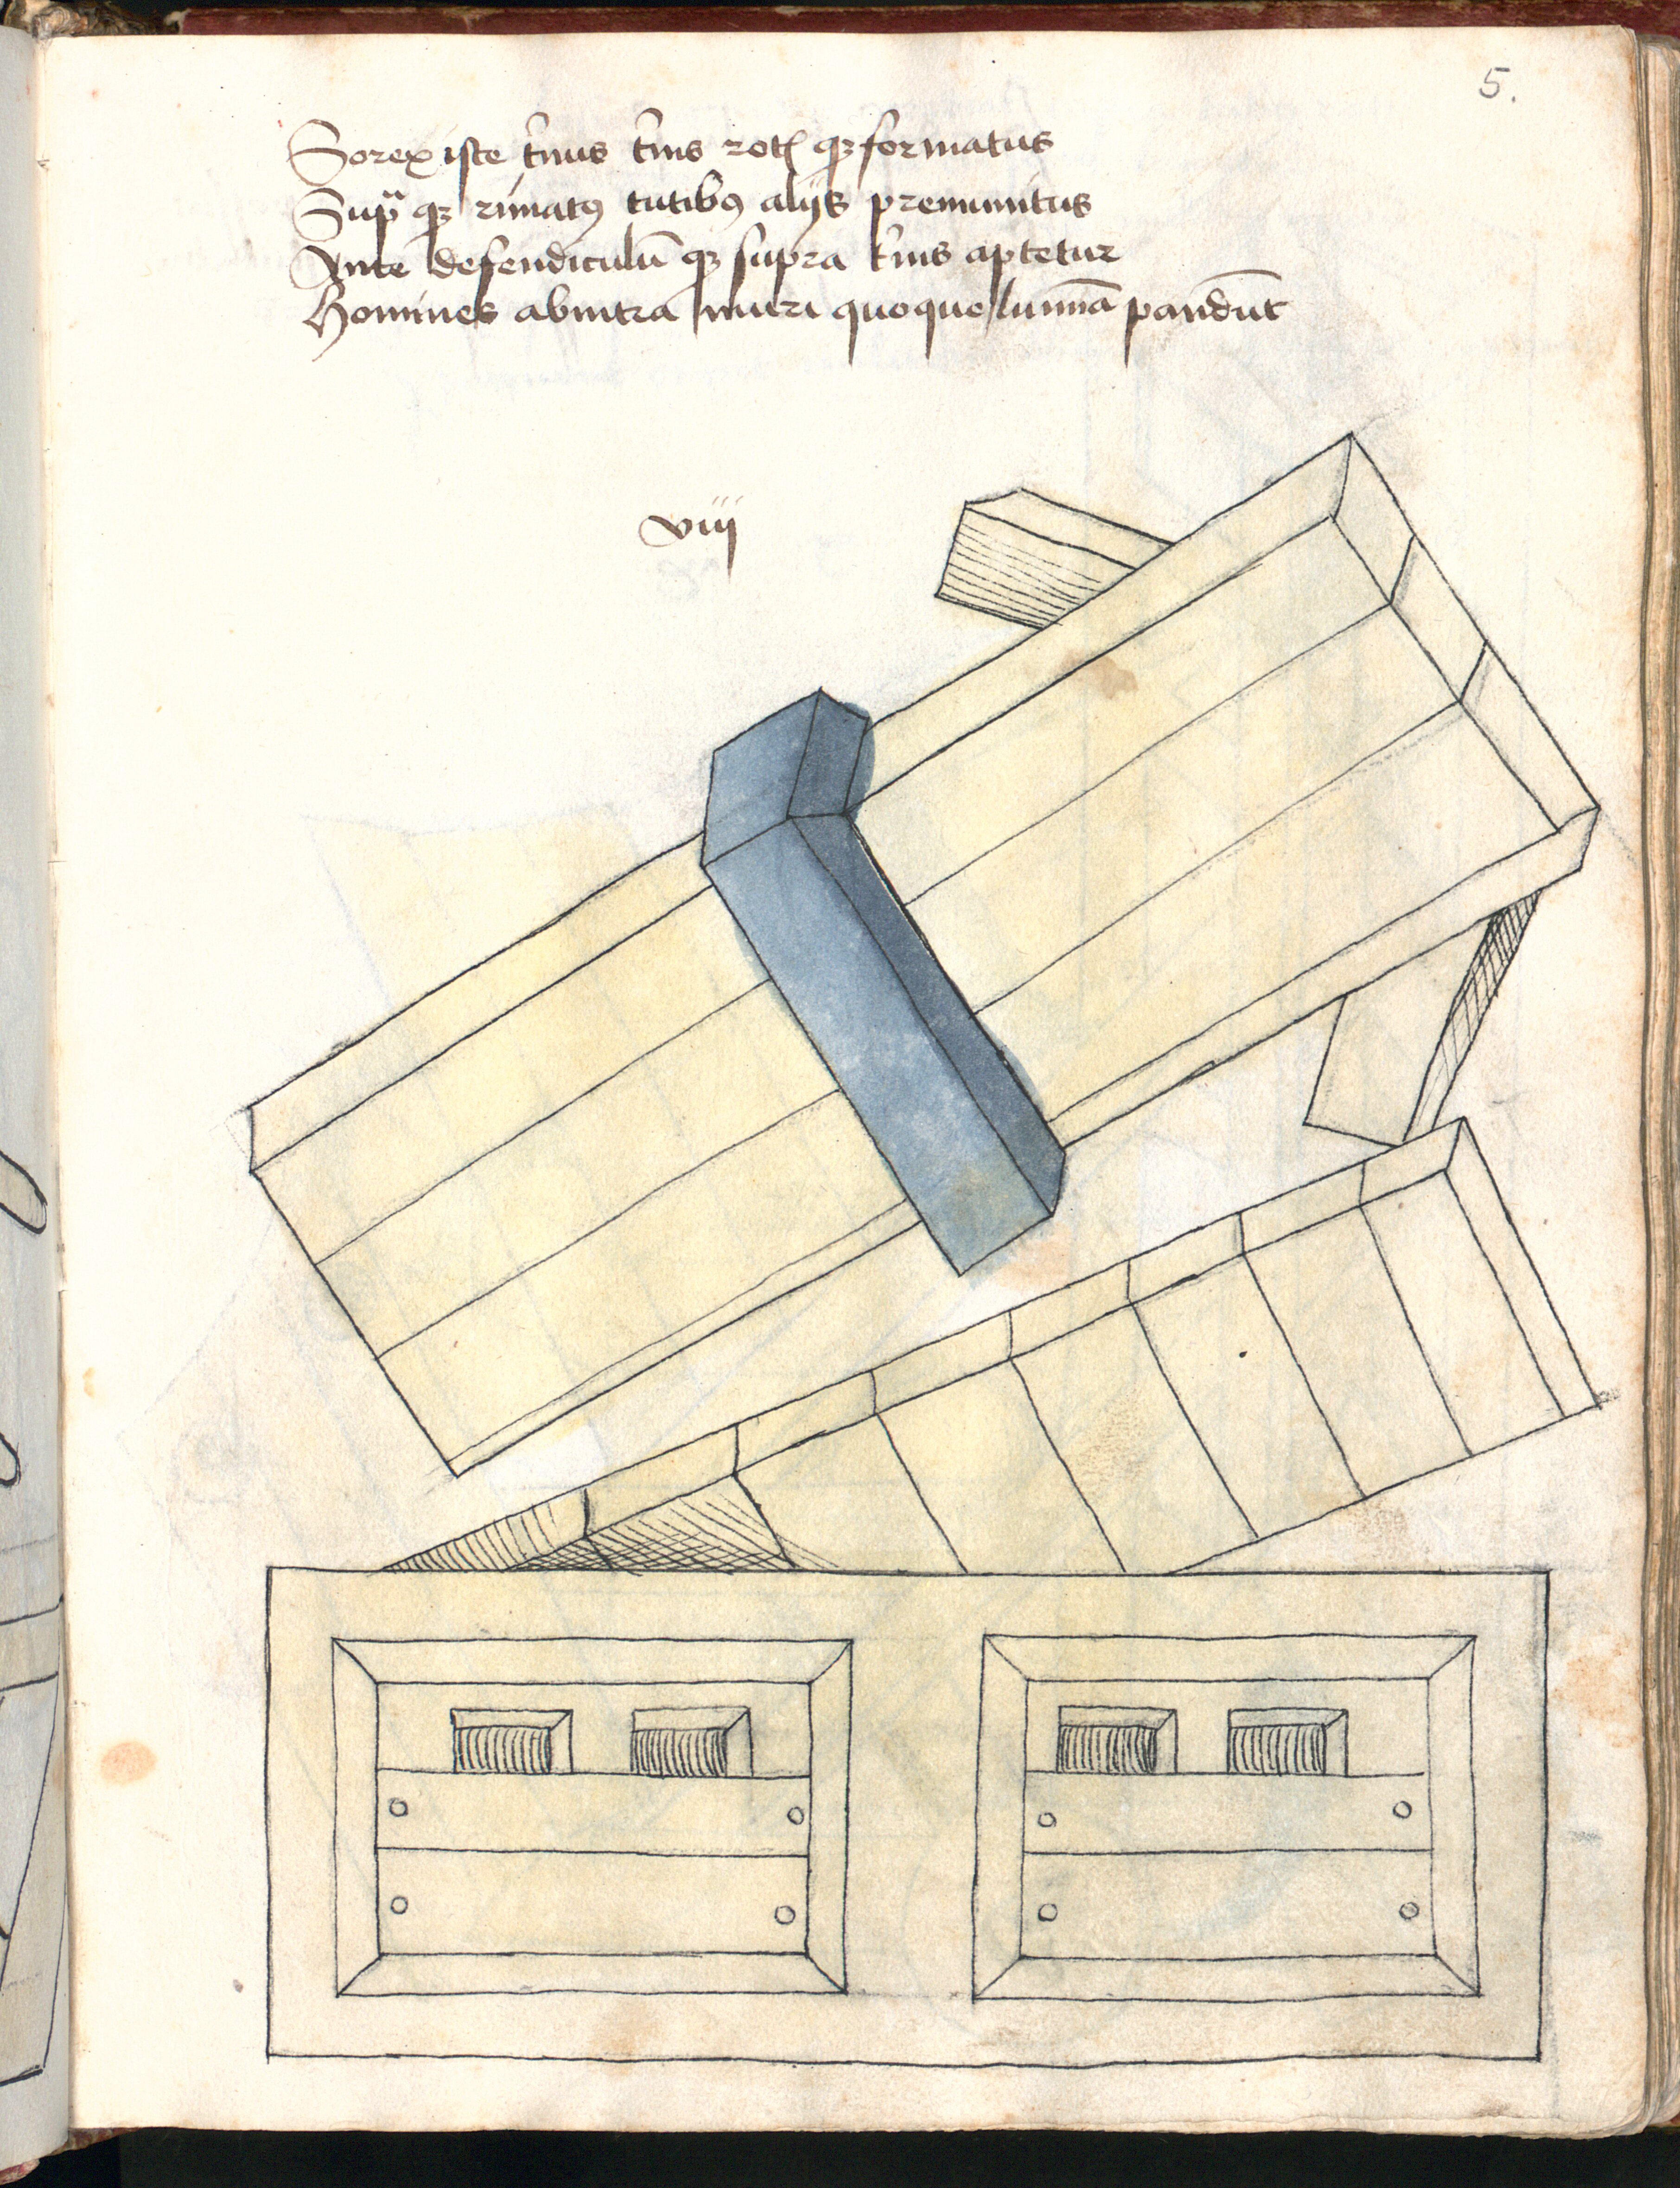 5.
Sorex iste t'nus t'nis rotis qz formatus
Supra qz rimatus tutibus alijs premunitus
Ante defendiculū qz supra t'nis aptetur
Homines abintra muri quoque lumīa pandūt
viij